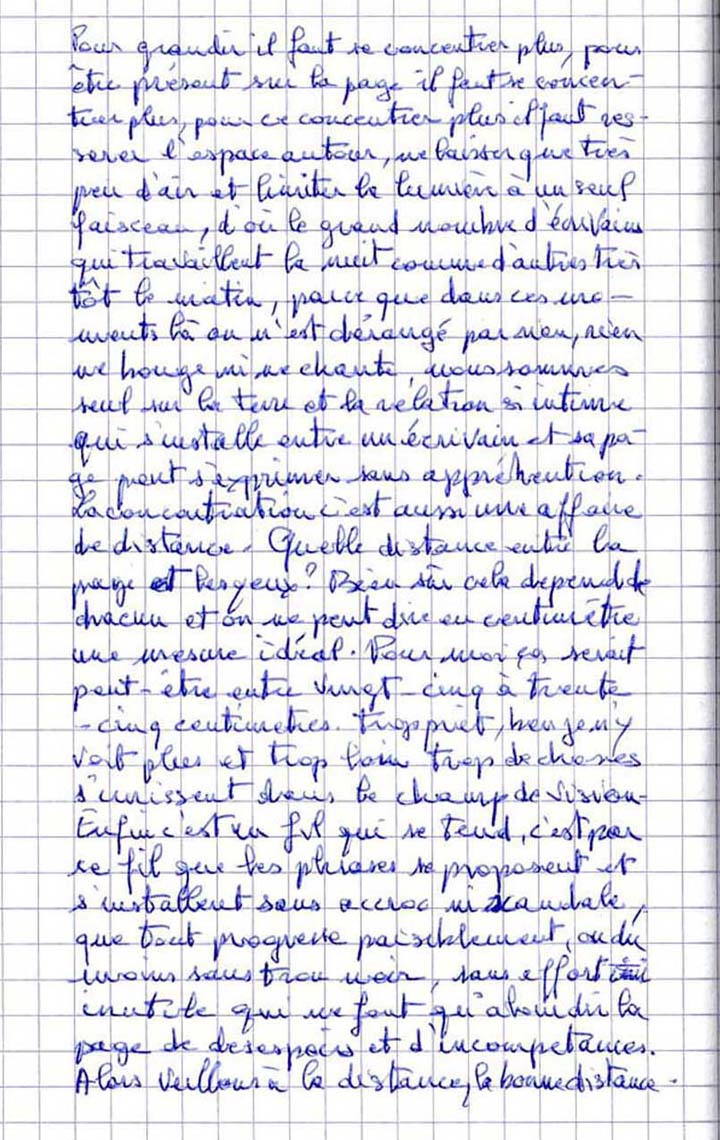 Pour grandir il faut se concentrer plus, pour
être présent sur la page il faut se concen-
trer plus, pour ce concentrer plus il faut res-
serer l'espace autour, ne laisser que très
peu d'air et limiter la lumière à un seul
faisceau, d'où le grand nombre d'écrivains
qui travaillent la nuit comme d'autres très
tôt le matin, parce que dans ces mo-
ments là on n'est dérangé par rien, rien
ne bouge ni ne chante, nous sommes
seul sur la terre et la relation si intime
qui s'installe entre un écrivain et sa pa-
ge peut s'exprimer sans appréhention.
La concentration c'est aussi une affaire
de distance. Quelle distance entre la
page et les yeux? Bien sûr cela depend de
chacun et on ne peut dire en centimètre
une mesure idéal. Pour moi ça serait
peut-être entre vingt-cinq à trente
-cinq centimetres. trop prêt, ben je n'y
voit plus et trop loin trop de choses
s'unissent dans le champ de vision.
Enfin c'est un fil qui se tend, c'est par
ce fil que les phrases se proposent et
s'installent sans accroc ni scandale,
que tout progresse paisiblement, ou du
moins sans trou noir, sans effort
inutile qui ne font qu'alourdir la
page de desespoirs et d'incompetances.
Alors veillons à la distance, la bonne distance.